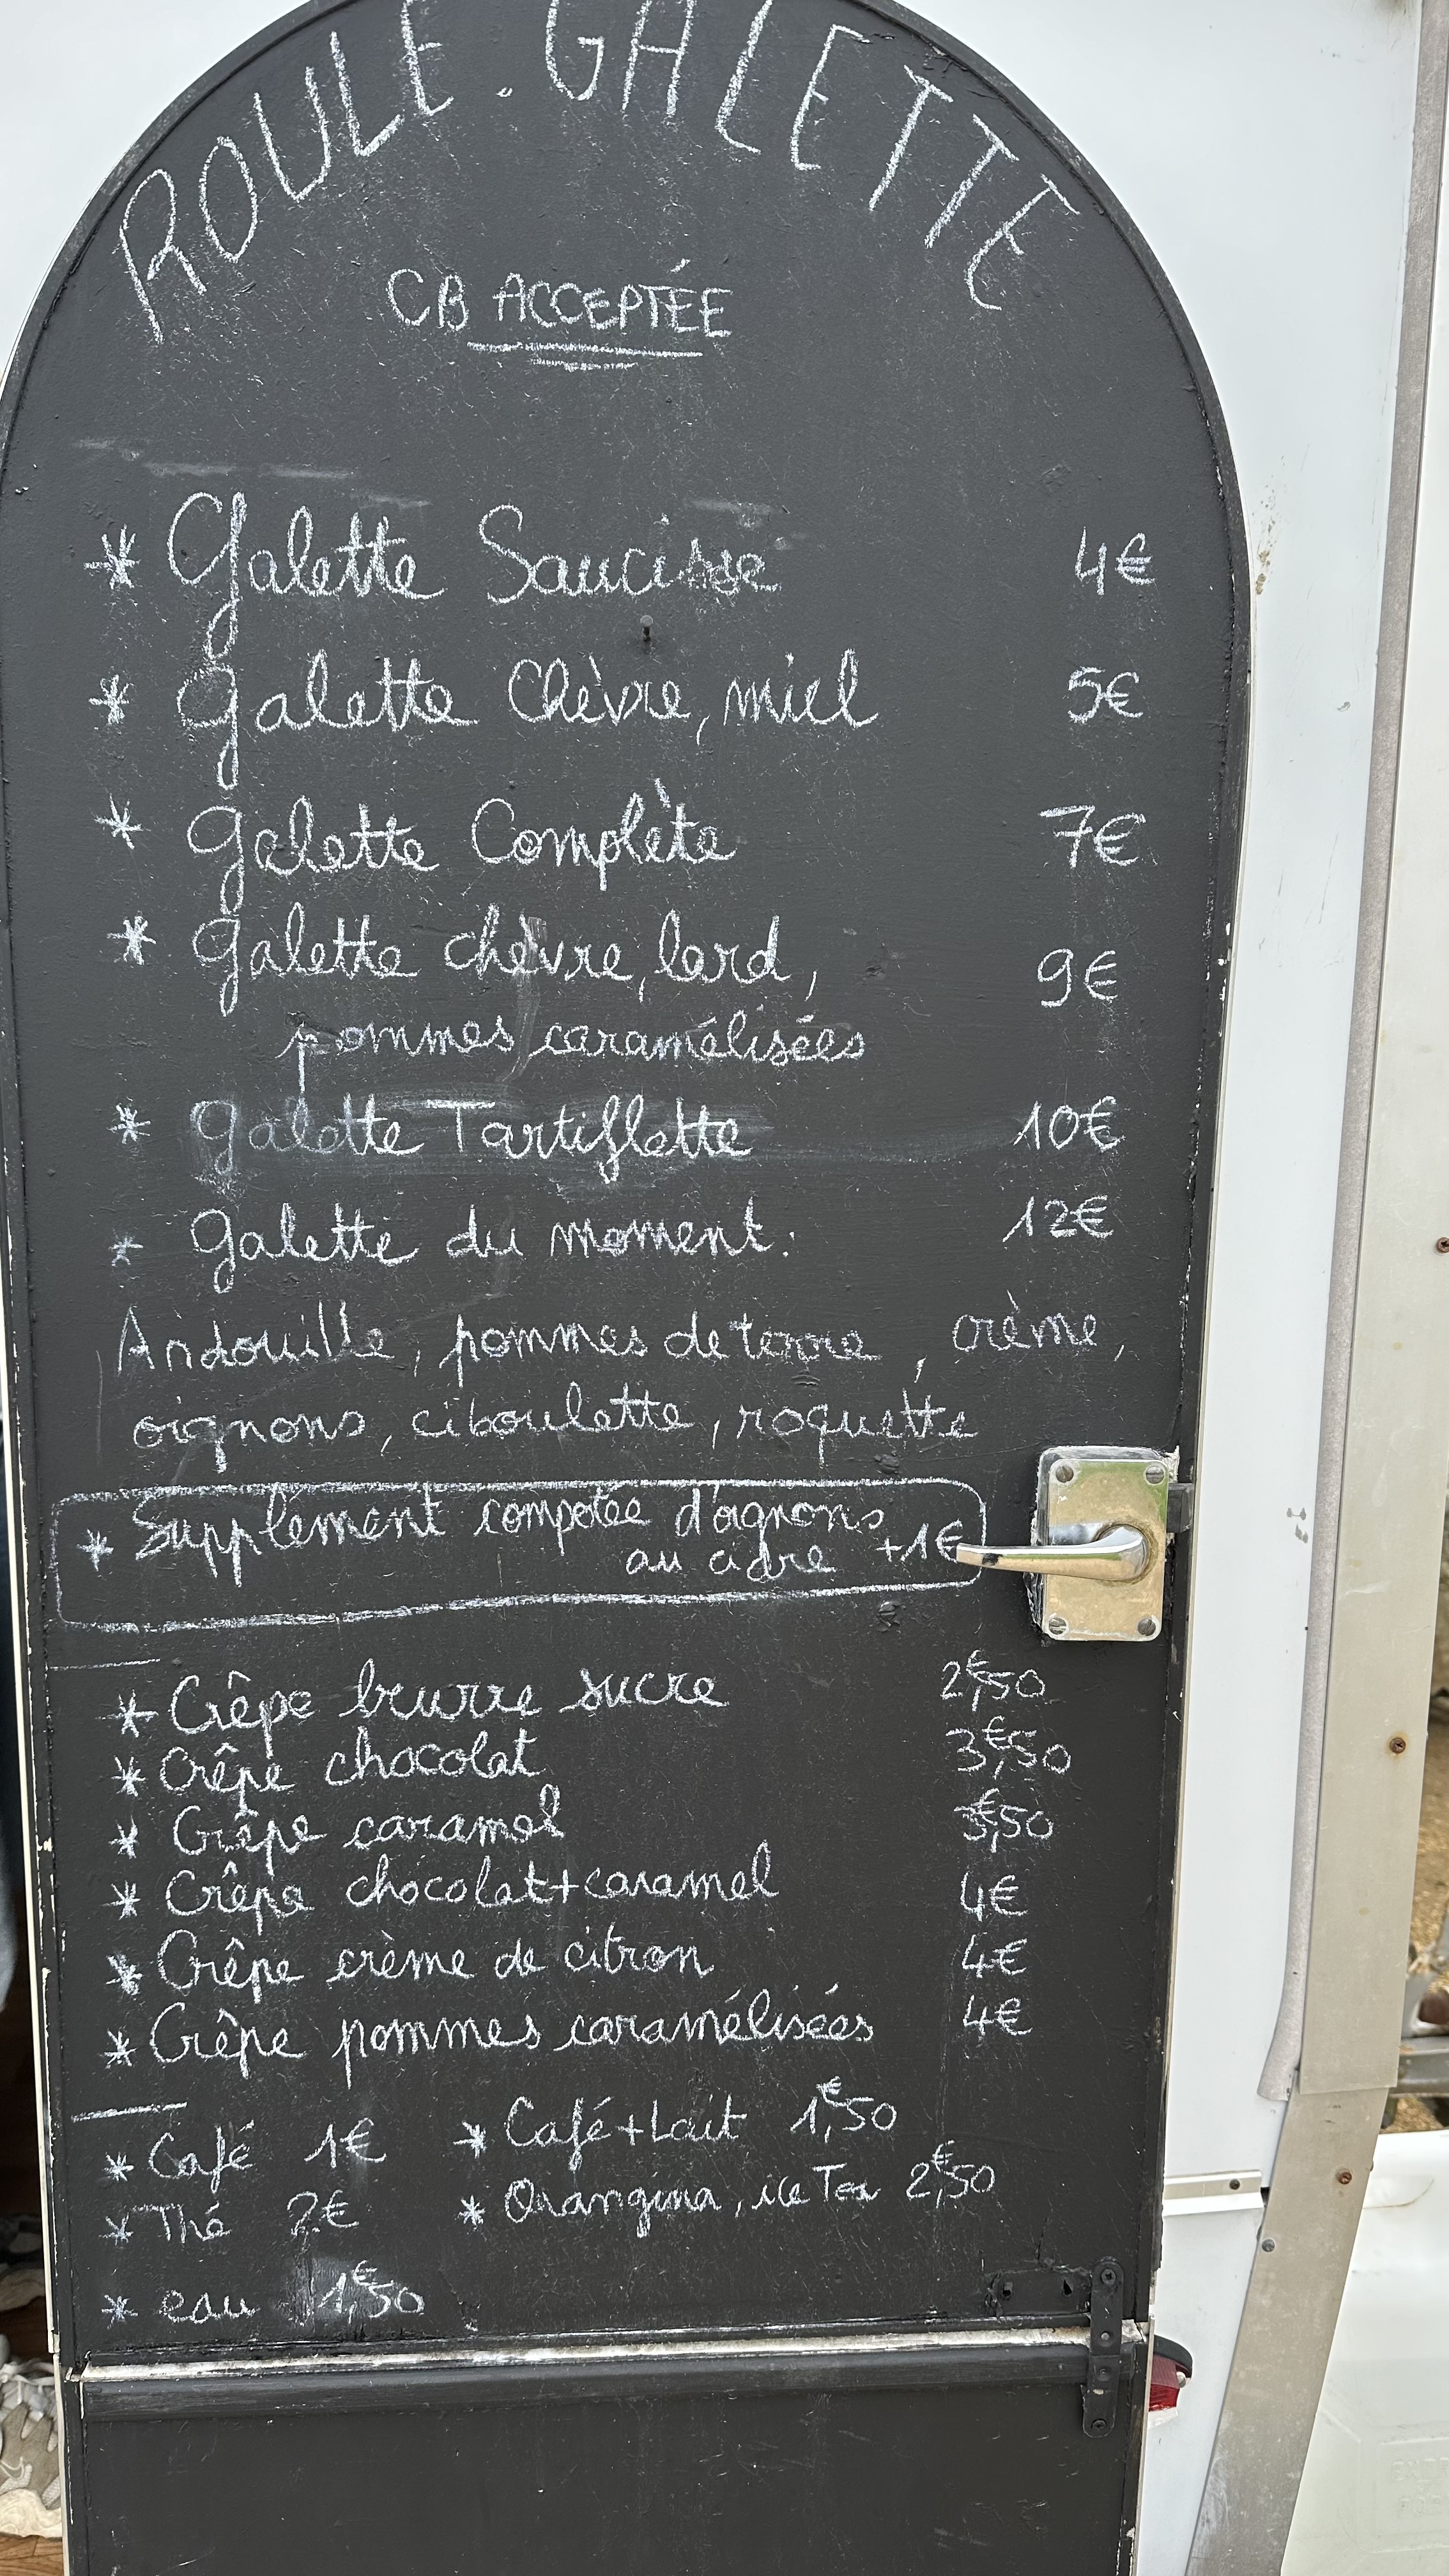 ROULE.GALETTE
CB ACCEPTÉE
* Galette Saucisse 4€
* Galette Chèvre, miel 5€
* Galette Complète 7€
* Galette chèvre, lard, 9€
pommes caramélisées
* Galette Tartiflette 10€
* Galette du moment: 12€
Andouille, pommes de terre, crème,
oignons, ciboulette, roquette
* Supplément compotée d'oignons
au cidre +1€
* Crêpe beurre sucre 2€,50
* Crêpe chocolat 3€,50
* Crêpe caramel 3€,50
* Crêpe chocolat+caramel 4€
* Crêpe crème de citron 4€
* Crêpe pommes caramélisées 4€
* Café 1€ * Café+Lait 1€,50
* Thé 2€ * Orangina, ice Tea 2€,50
* eau 1€,50